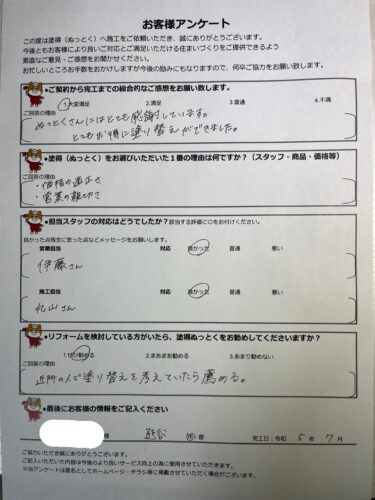 お客様アンケート
この度は塗得（ぬっとく）へ施工をご依頼いただき、誠にありがとうございます。
今後ともお客様により良いご対応とご満足いただける住まいづくりをご提供できるよう
素直なご意見・ご感想をお聞かせください。
お忙しいところお手数をおかけしますが今後の励みにもなりますので、何卒ご協力をお願い致します。
●ご契約から完工までの総合的なご感想をお願い致します。
1.大変満足 2.満足 3.普通 4.不満
ご回答の理由
ぬっとくさんにはとても感謝しています。
とてもお得に塗り替えができました。
●塗得（ぬっとく）をお選びいただいた１番の理由は何ですか？（スタッフ・商品・価格等）
ご回答の理由
・価格の適正さ
・営業の親切さ
●担当スタッフの対応はどうでしたか？該当する評価に〇をお付けください。
良かった点残念に思った点などメッセージをお願いします。
営業担当 対応 良かった 普通 悪い
伊藤さん
施工担当 対応 良かった 普通 悪い
丸山さん
●リフォームを検討している方がいたら、塗得ぬっとくをお勧めしてくださいますか？
1.ぜひ勧める 2.まあまあ勧める 3.あまり勧めない
ご回答の理由
近所の人で塗り替えを考えていたら薦める。
●最後にお客様の情報をご記入ください
様 熊谷 市 郡 完工日：令和 5 年 7 月
ご協力いただき誠にありがとうございました。
ご記入いただいた内容は今後のより良いサービス向上の為に使用させていただきます。
※当アンケートは匿名としてホームページ・チラシ等に掲載させていただく場合がございます。